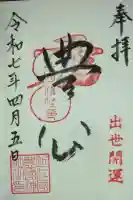 奉拝
出世開運
豊公
令和七年四月五日